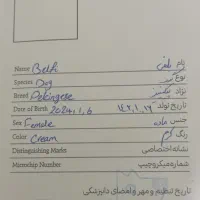 Name Beth نام بث
Species Dog نوع سگ
Breed Pekingese نژاد پکینیز
Date of Birth 2024,1,6 تاریخ تولد ۱۴۰۲,۱,۱۶
Sex Female جنس ماده
Color Cream رنگ کرم
Distinguishing Marks نشانه اختصاصی
Microchip Number شماره میکروچیپ
تاریخ تنظیم و مهر و امضای دامپزشکی